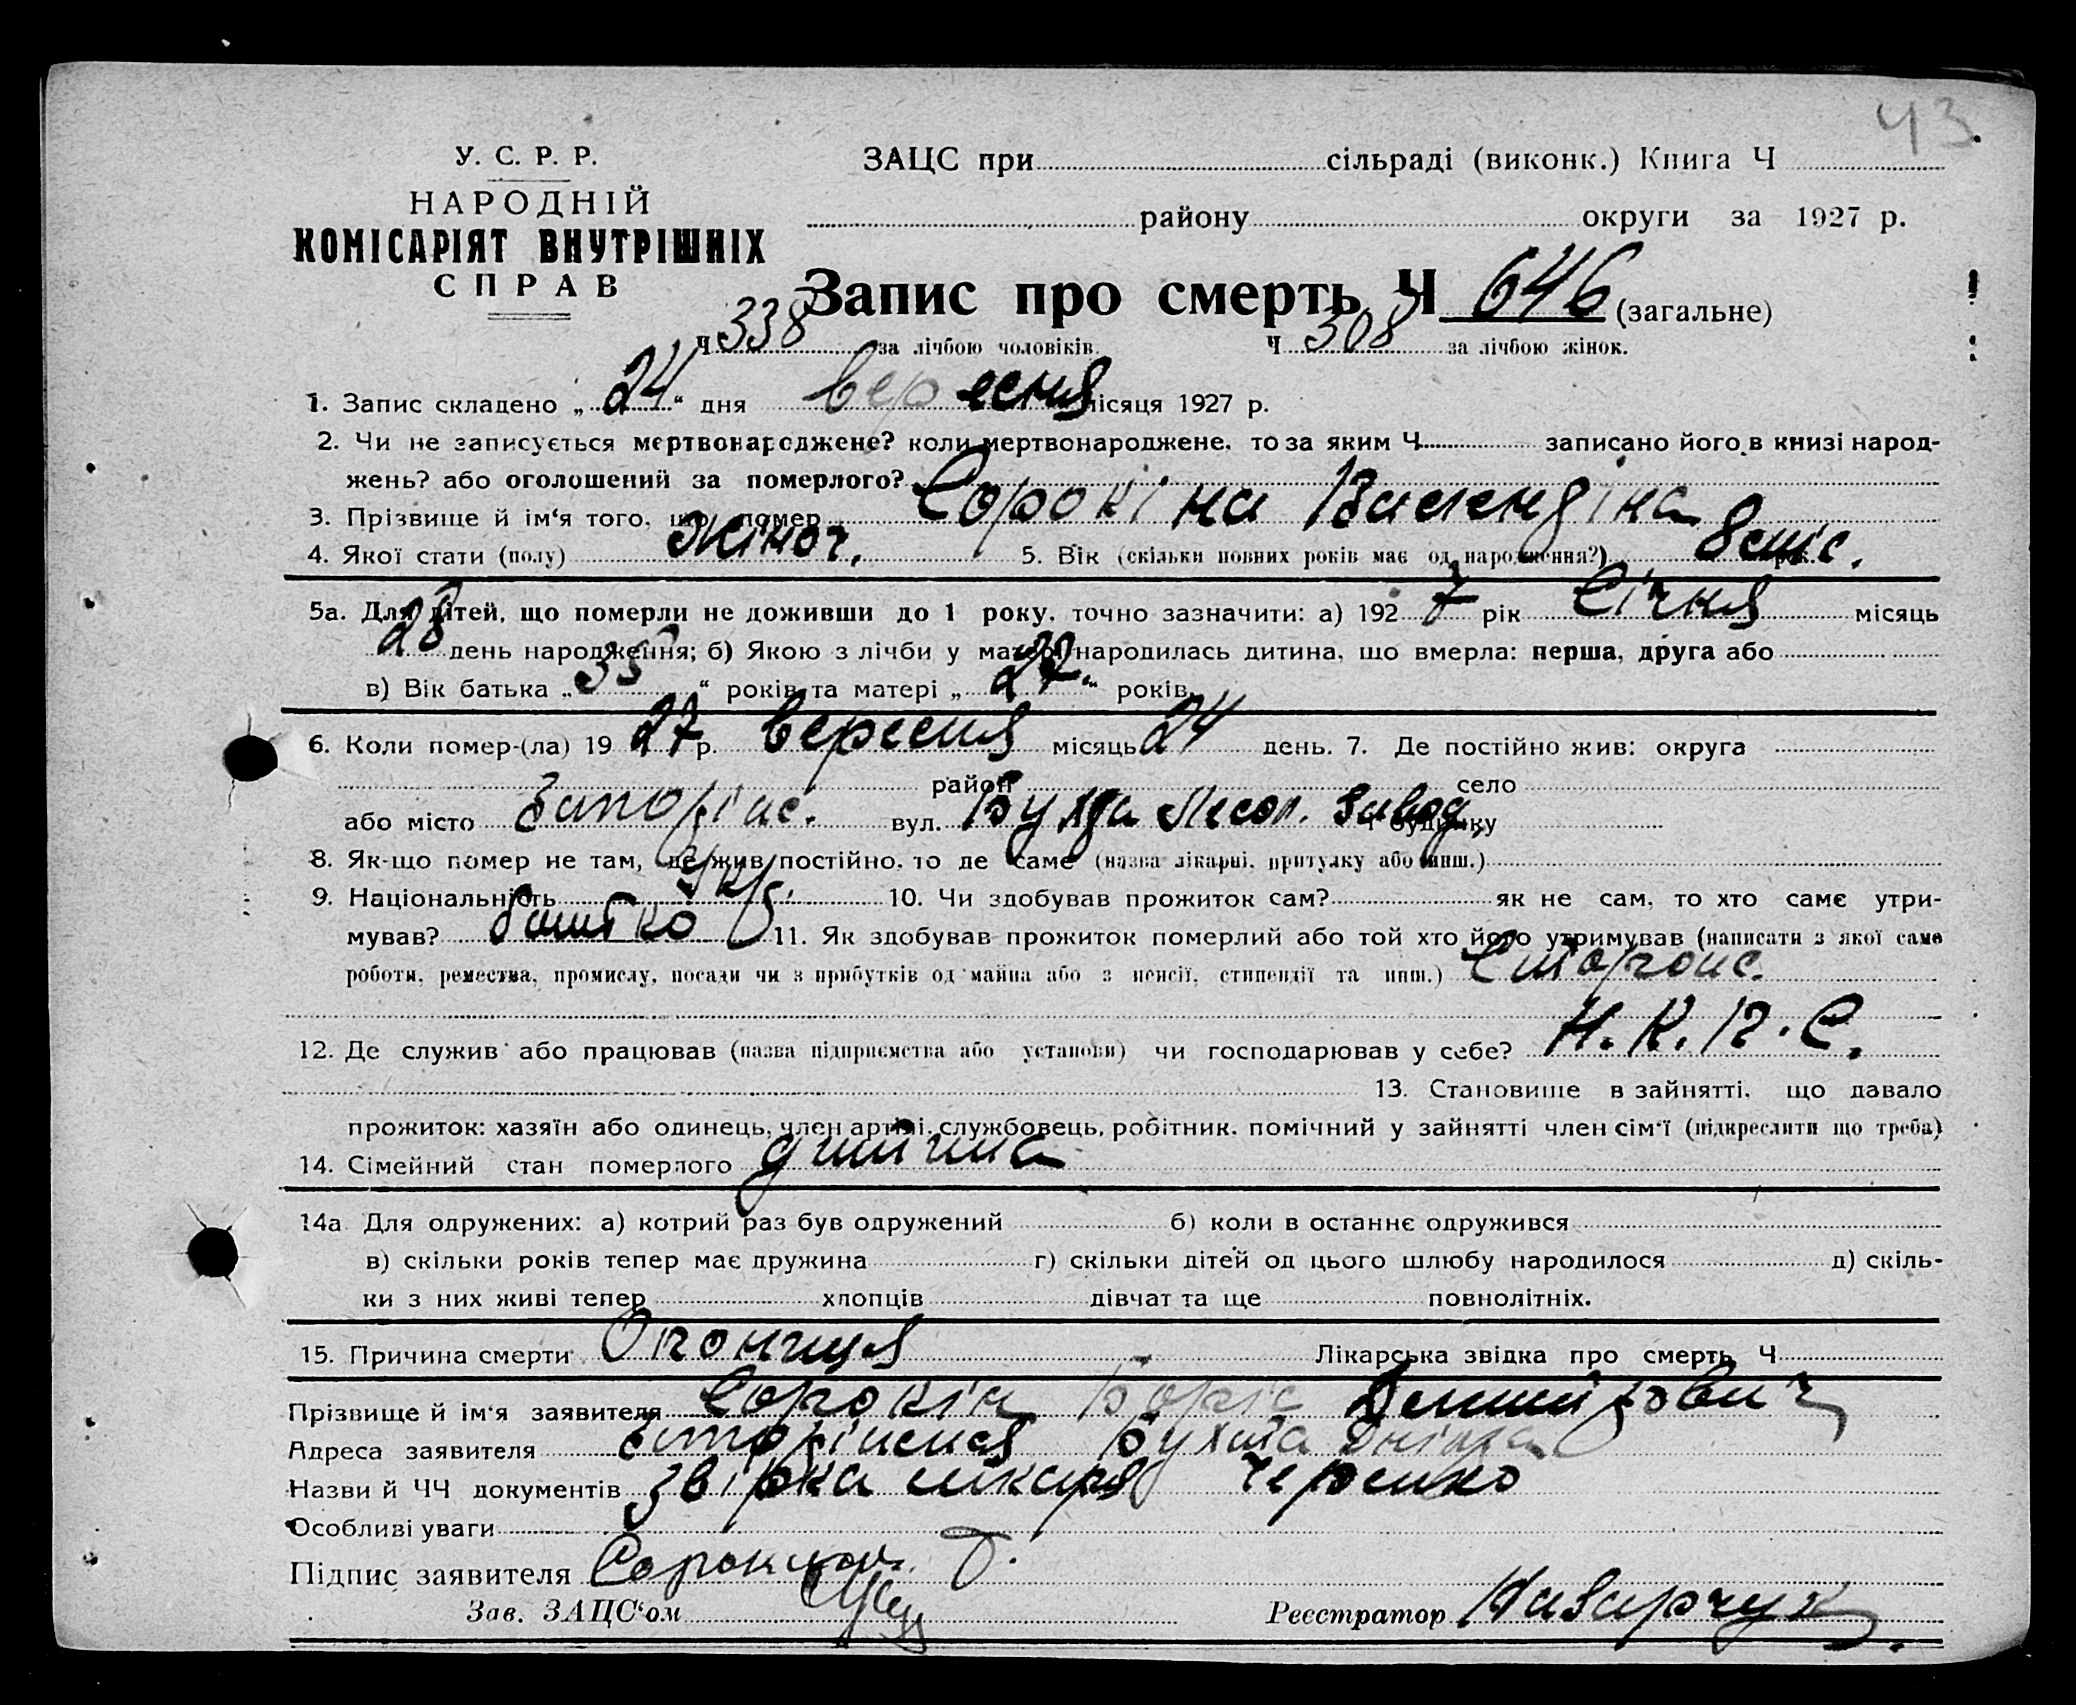 43
У. С. Р. Р.
НАРОДНІЙ
КОМІСАРІЯТ ВНУТРІШНІХ
СПРАВ
ЗАЦС при сільраді (виконк.) Книга Ч
району округи за 1927 р.
Запис про смерть Ч 646 (загальне)
Ч 338 за лічбою чоловіків. Ч 308 за лічбою жінок.
1. Запис складено „ 24 “ дня вересня місяця 1927 р.
2. Чи не записується мертвонароджене? коли мертвонароджене, то за яким Ч записано його в книзі народ-
жень? або оголошений за померлого?
3. Прізвище й ім‘я того, що помер Сорокіна Валендіна
4. Якої стати (полу) Жіноч. 5. Вік (скільки повних років має од народження?) 8 міс. рок.
5а. Для дітей, що померли не доживши до 1 року, точно зазначити: а) 192 7 рік Січня місяць
28 день народження; б) Якою з лічби у матері народилась дитина, що вмерла: перша, друга або
в) Вік батька „ 35 “ років та матері „ 27. “ років.
6. Коли помер-(ла) 19 27 р. вересня місяць 24 день. 7. Де постійно жив: округа
район село
або місто Запоріж. вул. Бухта Лесоп. Завод. Ч будинку
8. Як-що помер не там, де жив постійно, то де саме (назва лікарні, притулку або инш.)
9. Національність Укр. 10. Чи здобував прожиток сам? як не сам, то хто саме утри-
мував? батько 11. Як здобував прожиток померлий або той хто його утримував (написати з якої саме
роботи, ремества, промислу, посади чи з прибутків од майна або з пенсії, стипендії та инш.) Сторож.
12. Де служив або працював (назва підприємства або установи) чи господарював у себе? Н. К. П. С.
13. Становище в зайнятті, що давало
прожиток: хазяїн або одинець, член артілі, службовець, робітник, помічний у зайнятті член сім‘ї (підкреслити що треба)
14. Сімейний стан померлого дитина
14а. Для одружених: а) котрий раз був одружений б) коли в останнє одружився
в) скільки років тепер має дружина г) скільки дітей од цього шлюбу народилося д) скіль-
ки з них живі тепер хлопців дівчат та ще повнолітніх.
15. Причина смерти Лікарська звідка про смерть Ч
Прізвище й ім‘я заявителя Сорокін Боріс
Адреса заявителя Запоріжжя Бухта Дніпра
Назви й ЧЧ документів звідка лікаря
Особливі уваги
Підпис заявителя
Зав. ЗАЦС‘ом
Реєстратор Назарчук